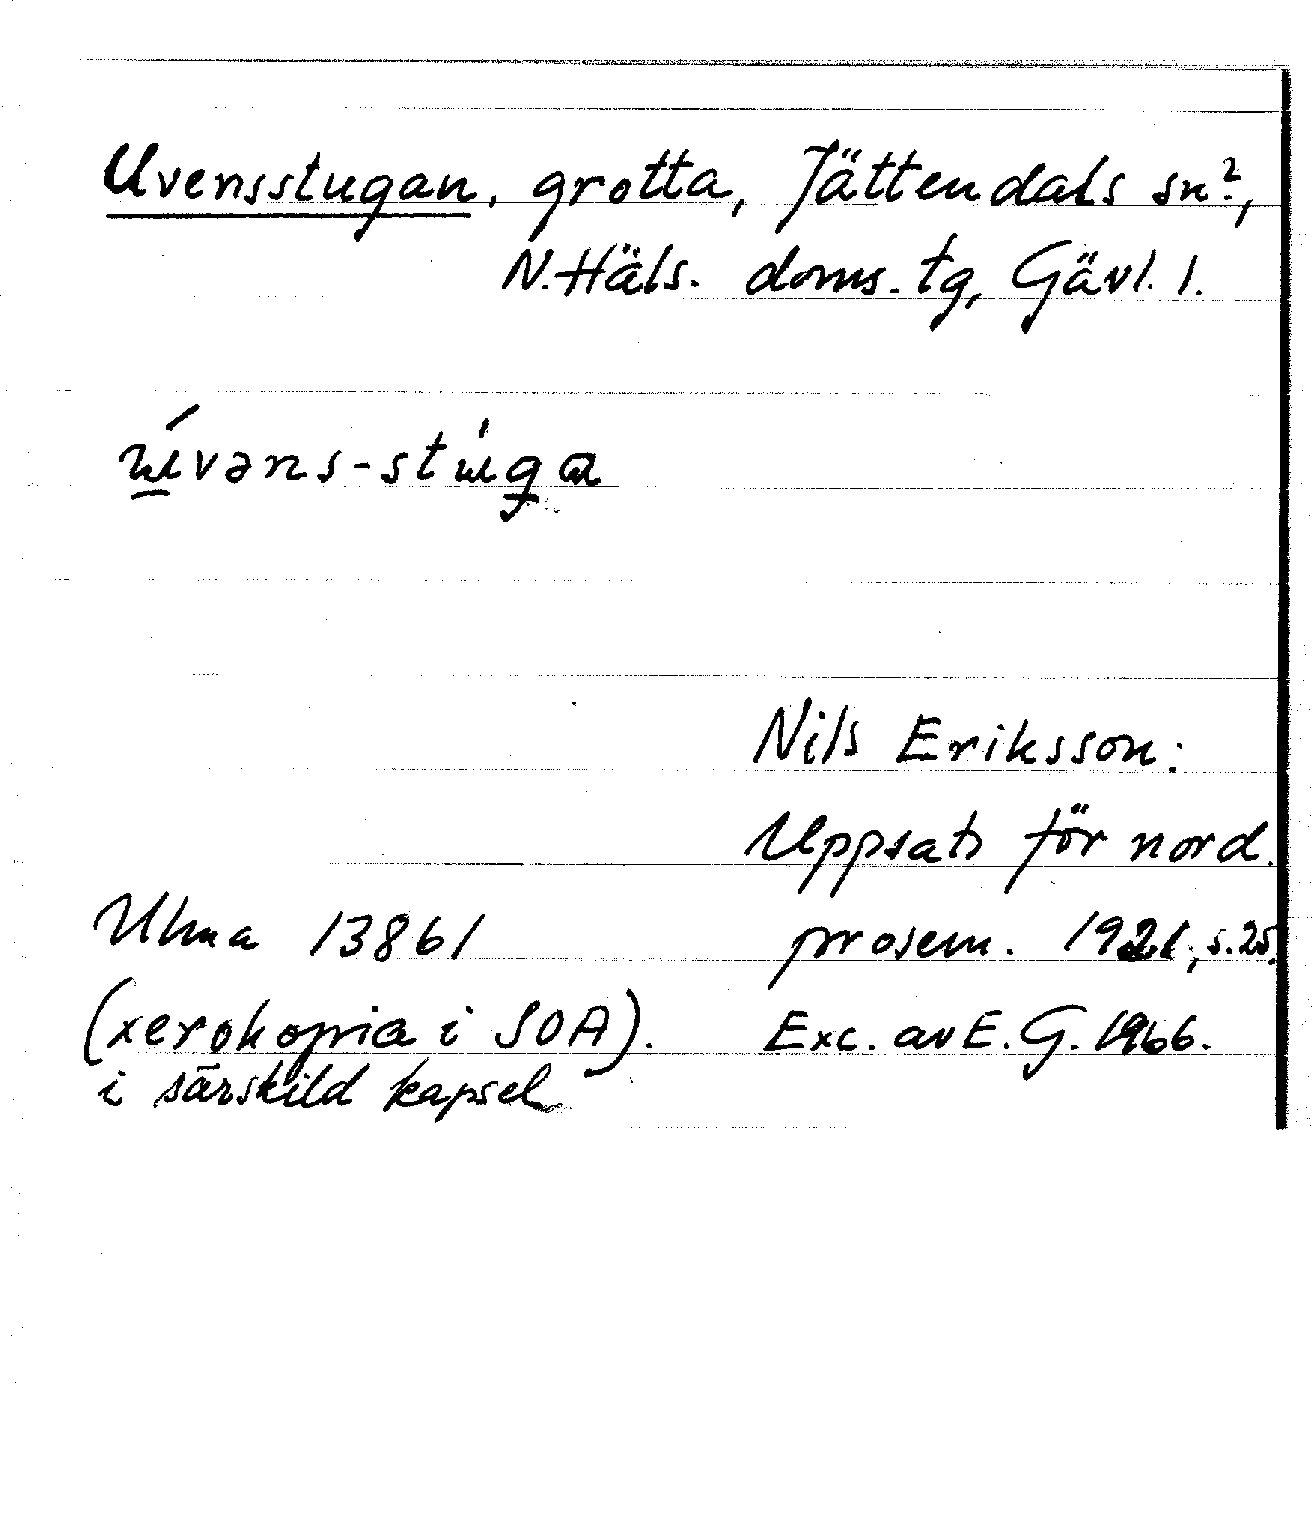 Uvensstugan, grotta, Jättendals sn?,
N.Häls. doms. tg, Gävl. l.
ɯ́vəns-stɯ̀ga
Nils Eriksson:
Uppsats för nord.
prosem. 1921, s.25.
Exc. av E.G. 1966.
Ulma 13861
(xerokopia i SOA).
i särskild kapsel